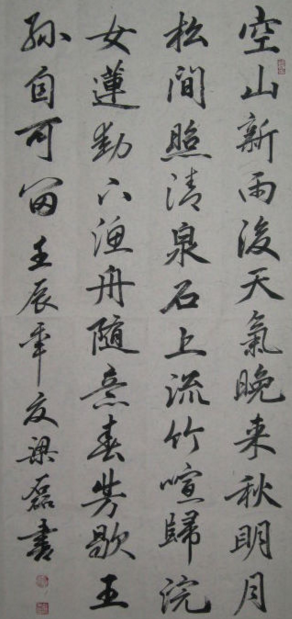 空山新雨後天氣晚来秋明月
松間照清泉石上流竹喧歸浣
女蓮動下漁舟隨意春芳歇王
孫自可留壬辰年夏梁磊書